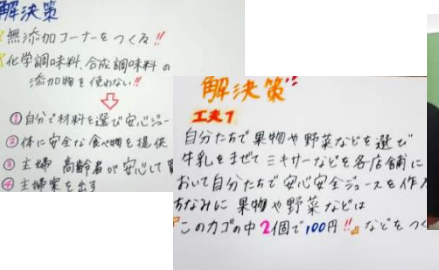 解決策
無添加コーナーをつくる!!
化学調味料、合成調味料の
添加物を使わない!!
①自分で材料を選び安心ジュー
②体に安全な食べ物を提供
③主婦 高齢者が安心して
④主婦案を出す
解決策!!
工夫1
自分たちで果物や野菜などを選び
牛乳をまぜてミキサーなどを各店舗に
おいて自分たちで安心安全ジュースを作
ちなみに 果物や野菜などは
『このカゴの中2個で100円!!』などをつく